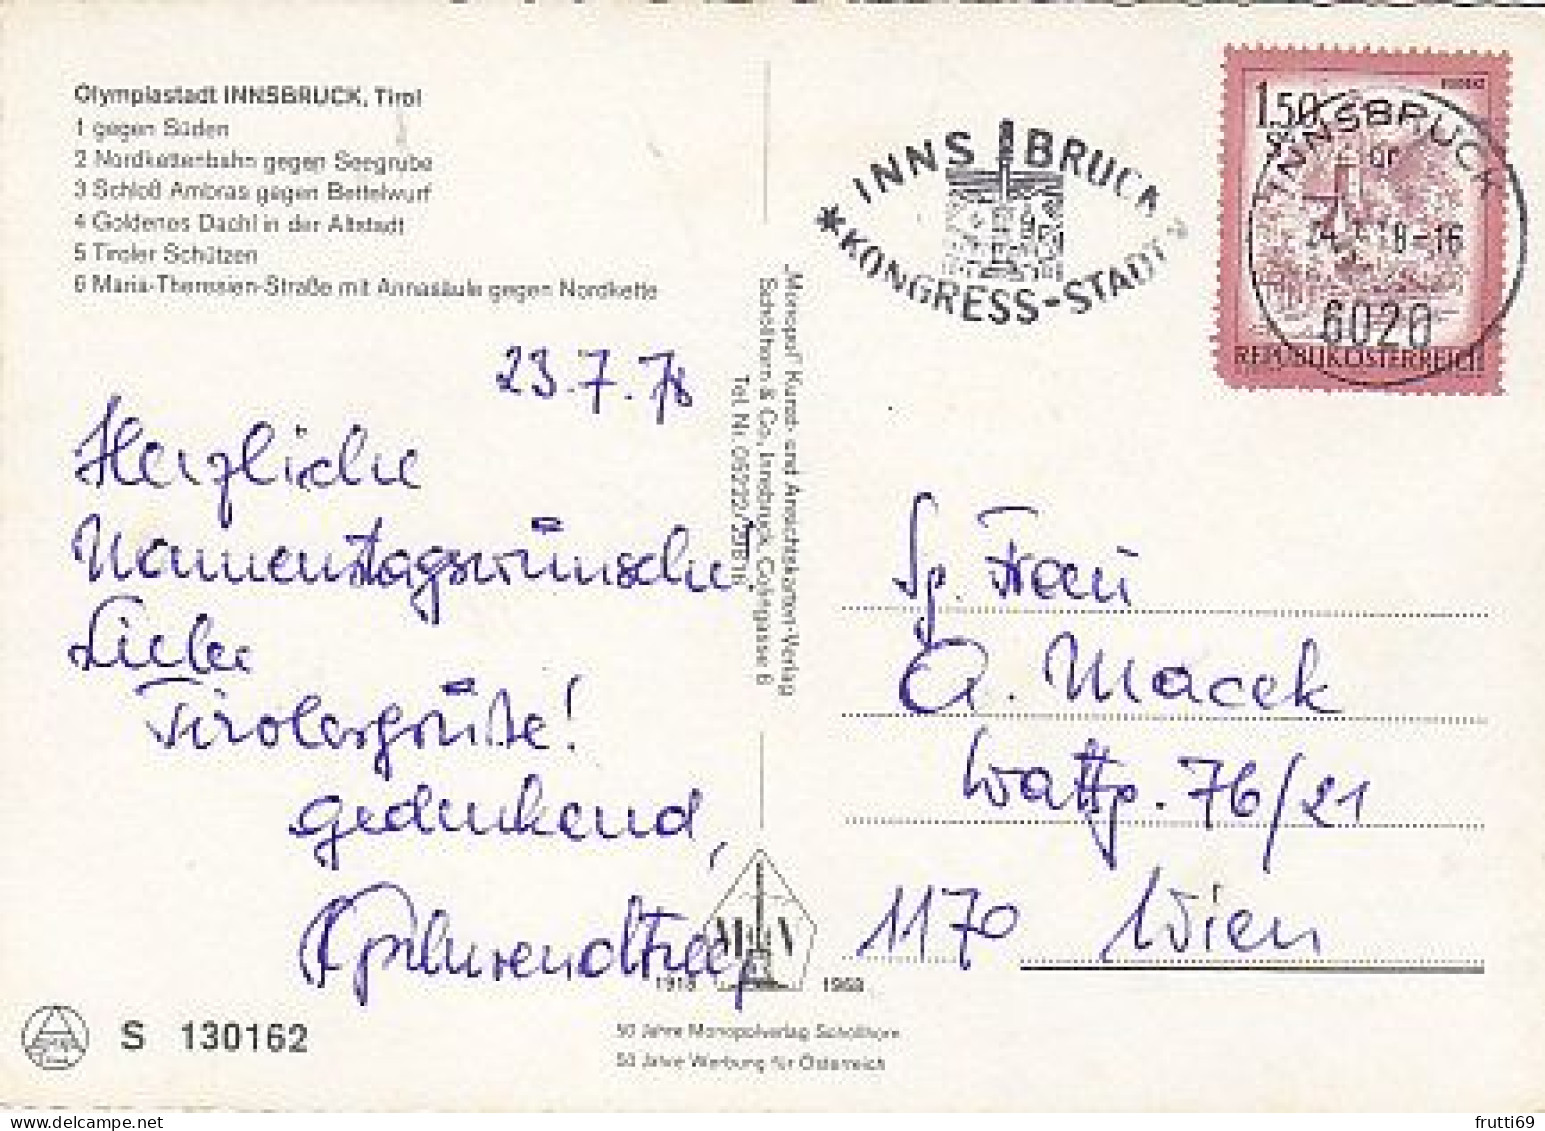 Olympiastadt INNSBRUCK, Tirol
1 gegen Süden
2 Nordkettenbahn gegen Seegrube
3 Schloß Ambras gegen Bettelwurf
4 Goldenes Dachl in der Altstadt
5 Tiroler Schützen
6 Maria-Theresien-Straße mit Annasäule gegen Nordkette
23.7.78
Herzliche
Namenstagswünsche,
Liebe
Tirolergrüße!
gedenkend,
S 130162
„Monopol" Kunst- und Ansichtskarten-Verlag
Schöllhorn & Co., Innsbruck,
Tel. Nr. 05222/
1918 1968
50 Jahre Monopolverlag Schöllhorn
50 Jahre Werbung für Österreich
INNSBRUCK
* KONGRESS-STADT *
1.50
S
REPUBLIK ÖSTERREICH
INNSBRUCK
8-16
6020
Sg. Frau
A. Macek
Wattg. 76/21
1170 Wien
frutti69